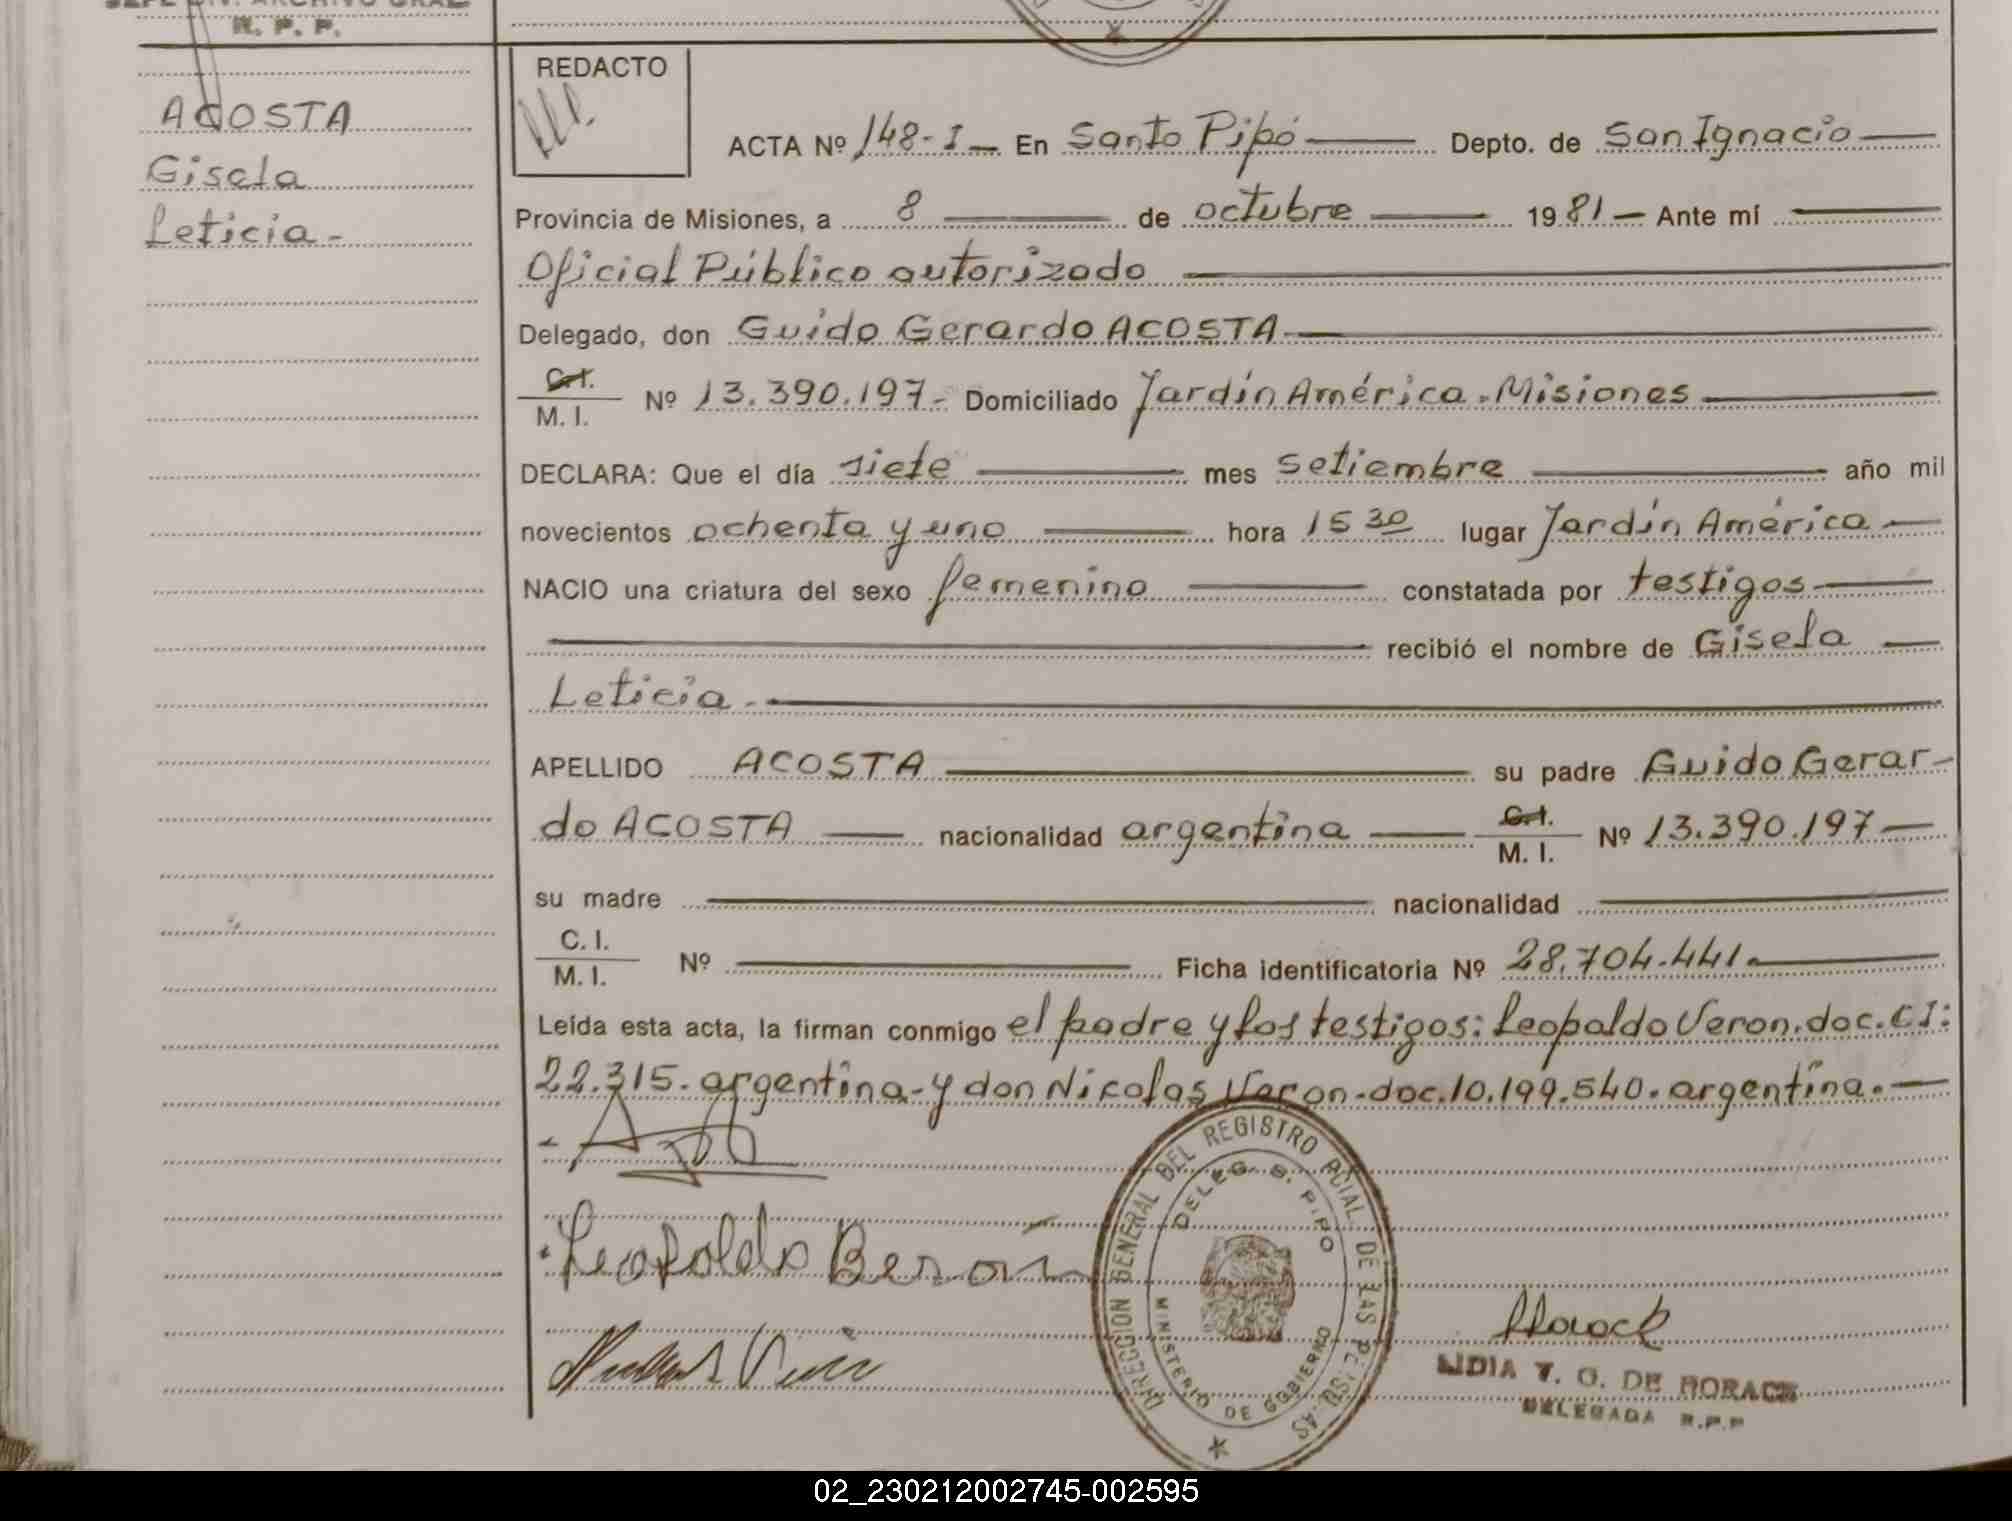 JEFE DIV. ARCHIVO GRAL
R. P. P.
ACOSTA
Gisela
Leticia.-
REDACTO
ACTA Nº 148-I — En Santo Pipó — Depto. de San Ignacio —
Provincia de Misiones, a 8 — de octubre — 1981 — Ante mí —
Oficial Público autorizado —
Delegado, don Guido Gerardo ACOSTA. —
C.I.
M. I. Nº 13.390.197.- Domiciliado Jardín América. Misiones —
DECLARA: Que el día siete — mes setiembre — año mil
novecientos ochenta y uno — hora 15 30 lugar Jardín América —
NACIO una criatura del sexo femenino — constatada por testigos —
— recibió el nombre de Gisela —
Leticia. —
APELLIDO ACOSTA — su padre Guido Gerar-
do ACOSTA — nacionalidad argentina — C.I. M. I. Nº 13.390.197 —
su madre — nacionalidad —
C. I.
M. I. Nº — Ficha identificatoria Nº 28.704.441. —
Leída esta acta, la firman conmigo el padre y los testigos: Leopoldo Veron. doc. CI:
22.315. argentina - y don Nicolas Veron - doc. 10.199.540. argentina. —
Leopoldo Beron
DIRECCION GENERAL DEL REGISTRO PCIAL. DE LAS PERSONAS
DELEG. S. PIPO
MINISTERIO DE GOBIERNO
LIDIA T. G. DE HORACK
DELEGADA R.P.P
02_230212002745-002595